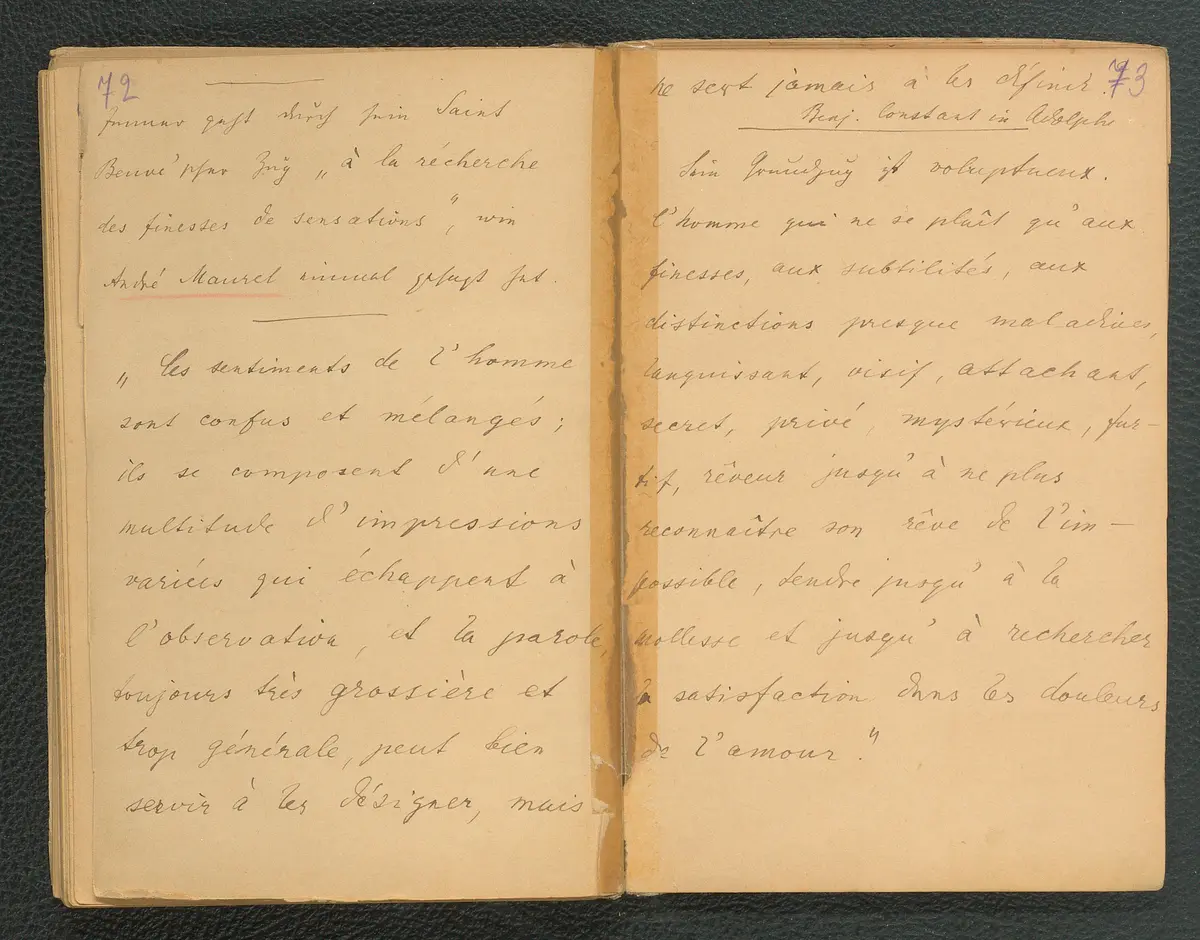 72
Immer geht durch sein Saint
Beuve'scher Zug „à la récherche
des finesses de sensations“, wie
André Maurel einmal gesagt hat.
„Les sentiments de l'homme
sont confus et mélangés;
ils se composent d'une
multitude d'impressions
variées qui échappent à
l'observation, et la parole,
toujours très grossière et
trop générale, peut bien
servir à les désigner, mais
73
ne sert jamais à les définir.
Benj. Constant in Adolphe
Sein Grundzug ist voluptueux.
l'homme qui ne se plaît qu'aux
finesses, aux subtilités, aux
distinctions presque maladives,
languissant, visif, attachant,
secret, privé, mystérieux, fur-
tif, rêveur jusqu'à ne plus
reconnaître son rêve de l'im-
possible, tendre jusqu'à la
mollesse et jusqu'à rechercher
la satisfaction dans les douleurs
de l'amour.“